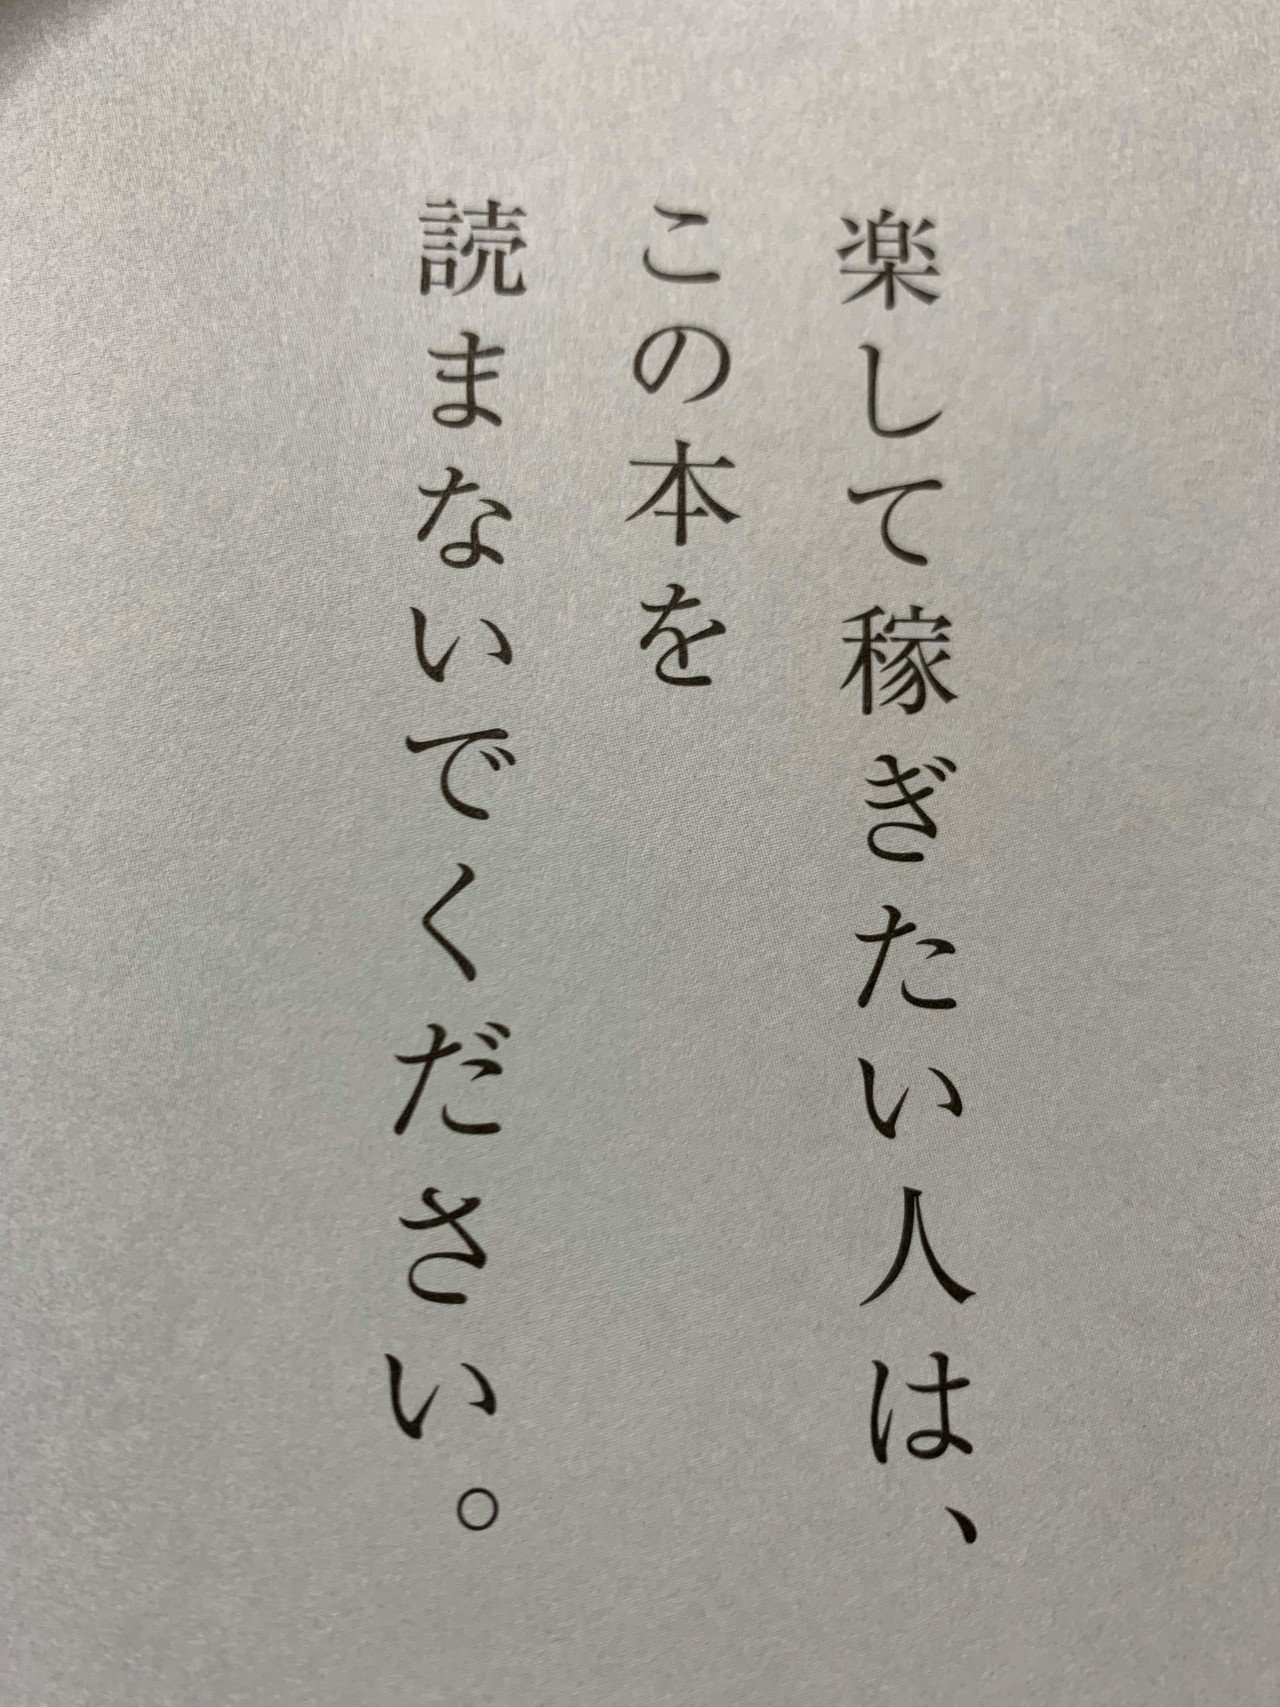 楽して稼ぎたい人は、
この本を
読まないでください。